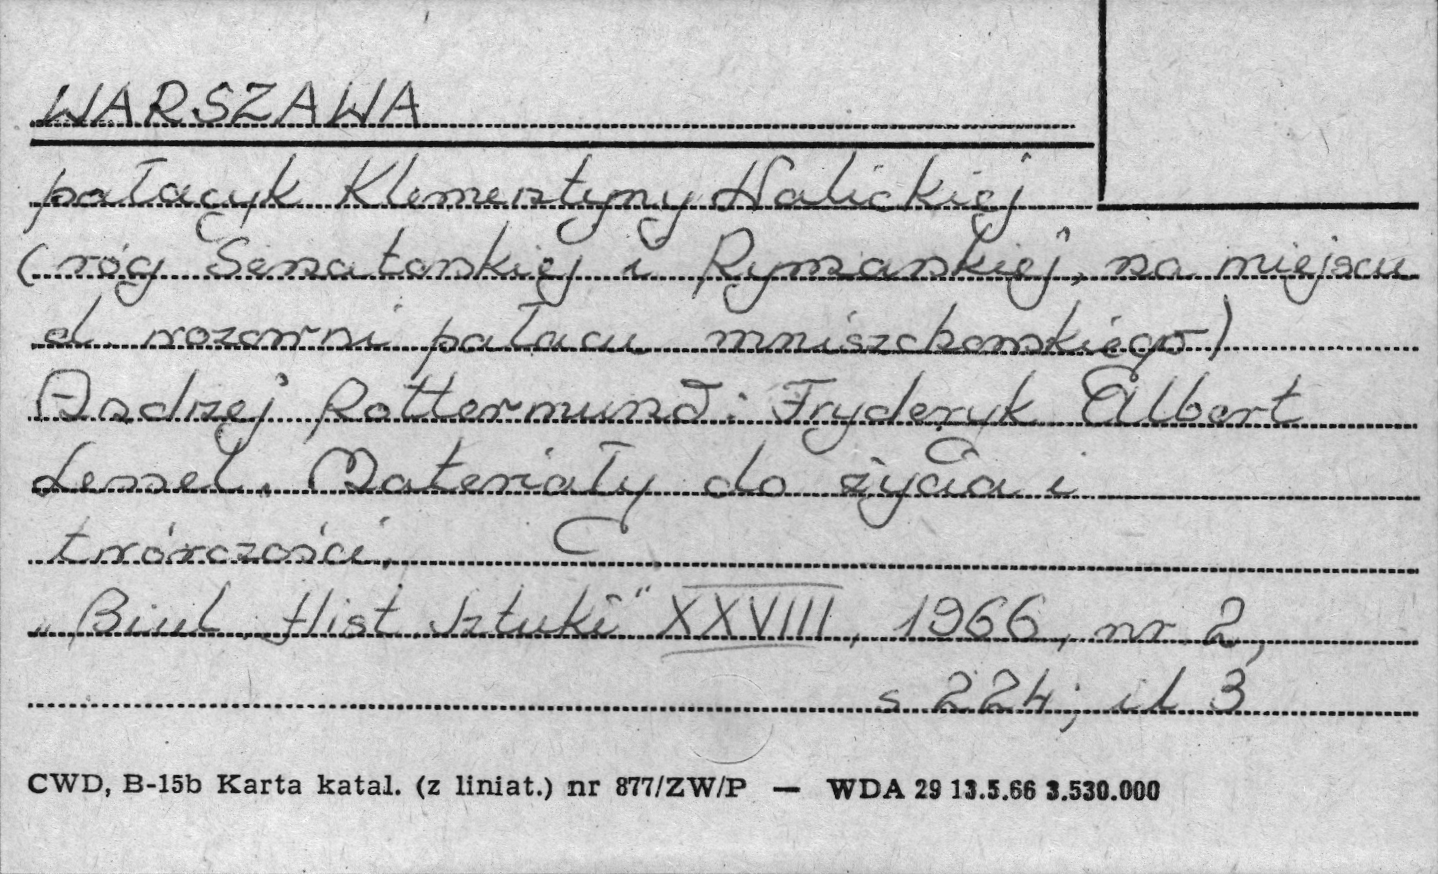 WARSZAWA
pałacyk Klementyny Halickiej
(róg Senatorskiej i Rymarskiej, na miejscu
d. wozowni pałacu mniszchowskiego)
Andrzej Rottermund: Fryderyk Albert
Lessel. Materiały do życia i
twórczości.
„Biul. Hist. Sztuki" XXVIII, 1966, nr 2,
s 224; il 3
CWD, B-15b Karta katal. (z liniat.) nr 877/ZW/P — WDA 29 13.5.66 3.530.000